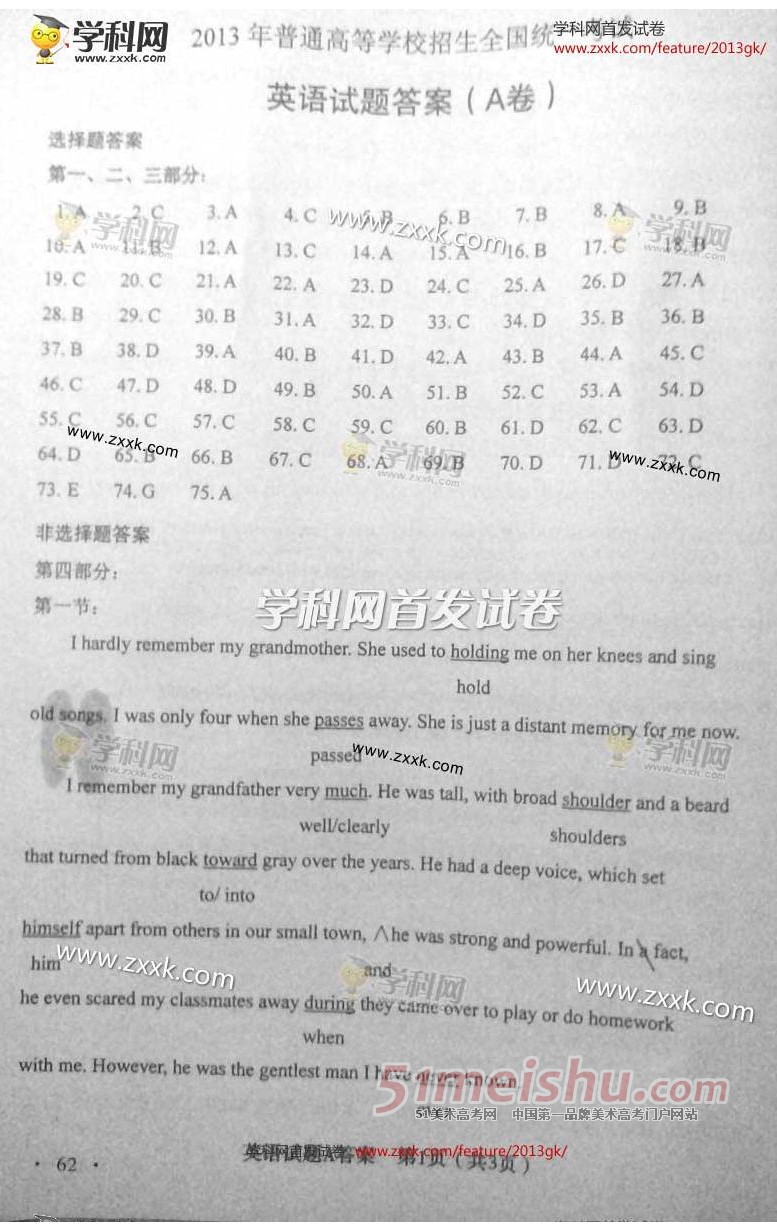 学科网
www.zxxk.com
学科网首发试卷
www.zxxk.com/feature/2013gk/
2013年普通高等学校招生全国统
英语试题答案(A卷)
选择题答案
第一、二、三部分:
1. A 2. C 3. A 4. C 5. B 6. B 7. B 8. A 9. B
10. A 11. B 12. A 13. C 14. A 15. A 16. B 17. C 18. B
19. C 20. C 21. A 22. A 23. D 24. C 25. A 26. D 27. A
28. B 29. C 30. B 31. A 32. D 33. C 34. D 35. B 36. B
37. B 38. D 39. A 40. B 41. D 42. A 43. B 44. A 45. C
46. C 47. D 48. D 49. B 50. A 51. B 52. C 53. A 54. D
55. C 56. C 57. C 58. C 59. C 60. B 61. D 62. C 63. D
64. D 65. B 66. B 67. C 68. A 69. B 70. D 71. D 72. C
73. E 74. G 75. A
非选择题答案
第四部分:
第一节:
学科网首发试卷
I hardly remember my grandmother. She used to holding me on her knees and sing
hold
old songs. I was only four when she passes away. She is just a distant memory for me now.
passed
www.zxxk.com
I remember my grandfather very much. He was tall, with broad shoulder and a beard
well/clearly shoulders
that turned from black toward gray over the years. He had a deep voice, which set
to/ into
himself apart from others in our small town, ∧he was strong and powerful. In a fact,
him and
www.zxxk.com
www.zxxk.com
he even scared my classmates away during they came over to play or do homework
when
with me. However, he was the gentlest man I have never known.
51meishu.com
51美术高考网 中国第一品牌美术高考门户网站
· 62 ·
英语试题A答案 第1页(共3页)
学科网首发试卷 www.zxxk.com/feature/2013gk/